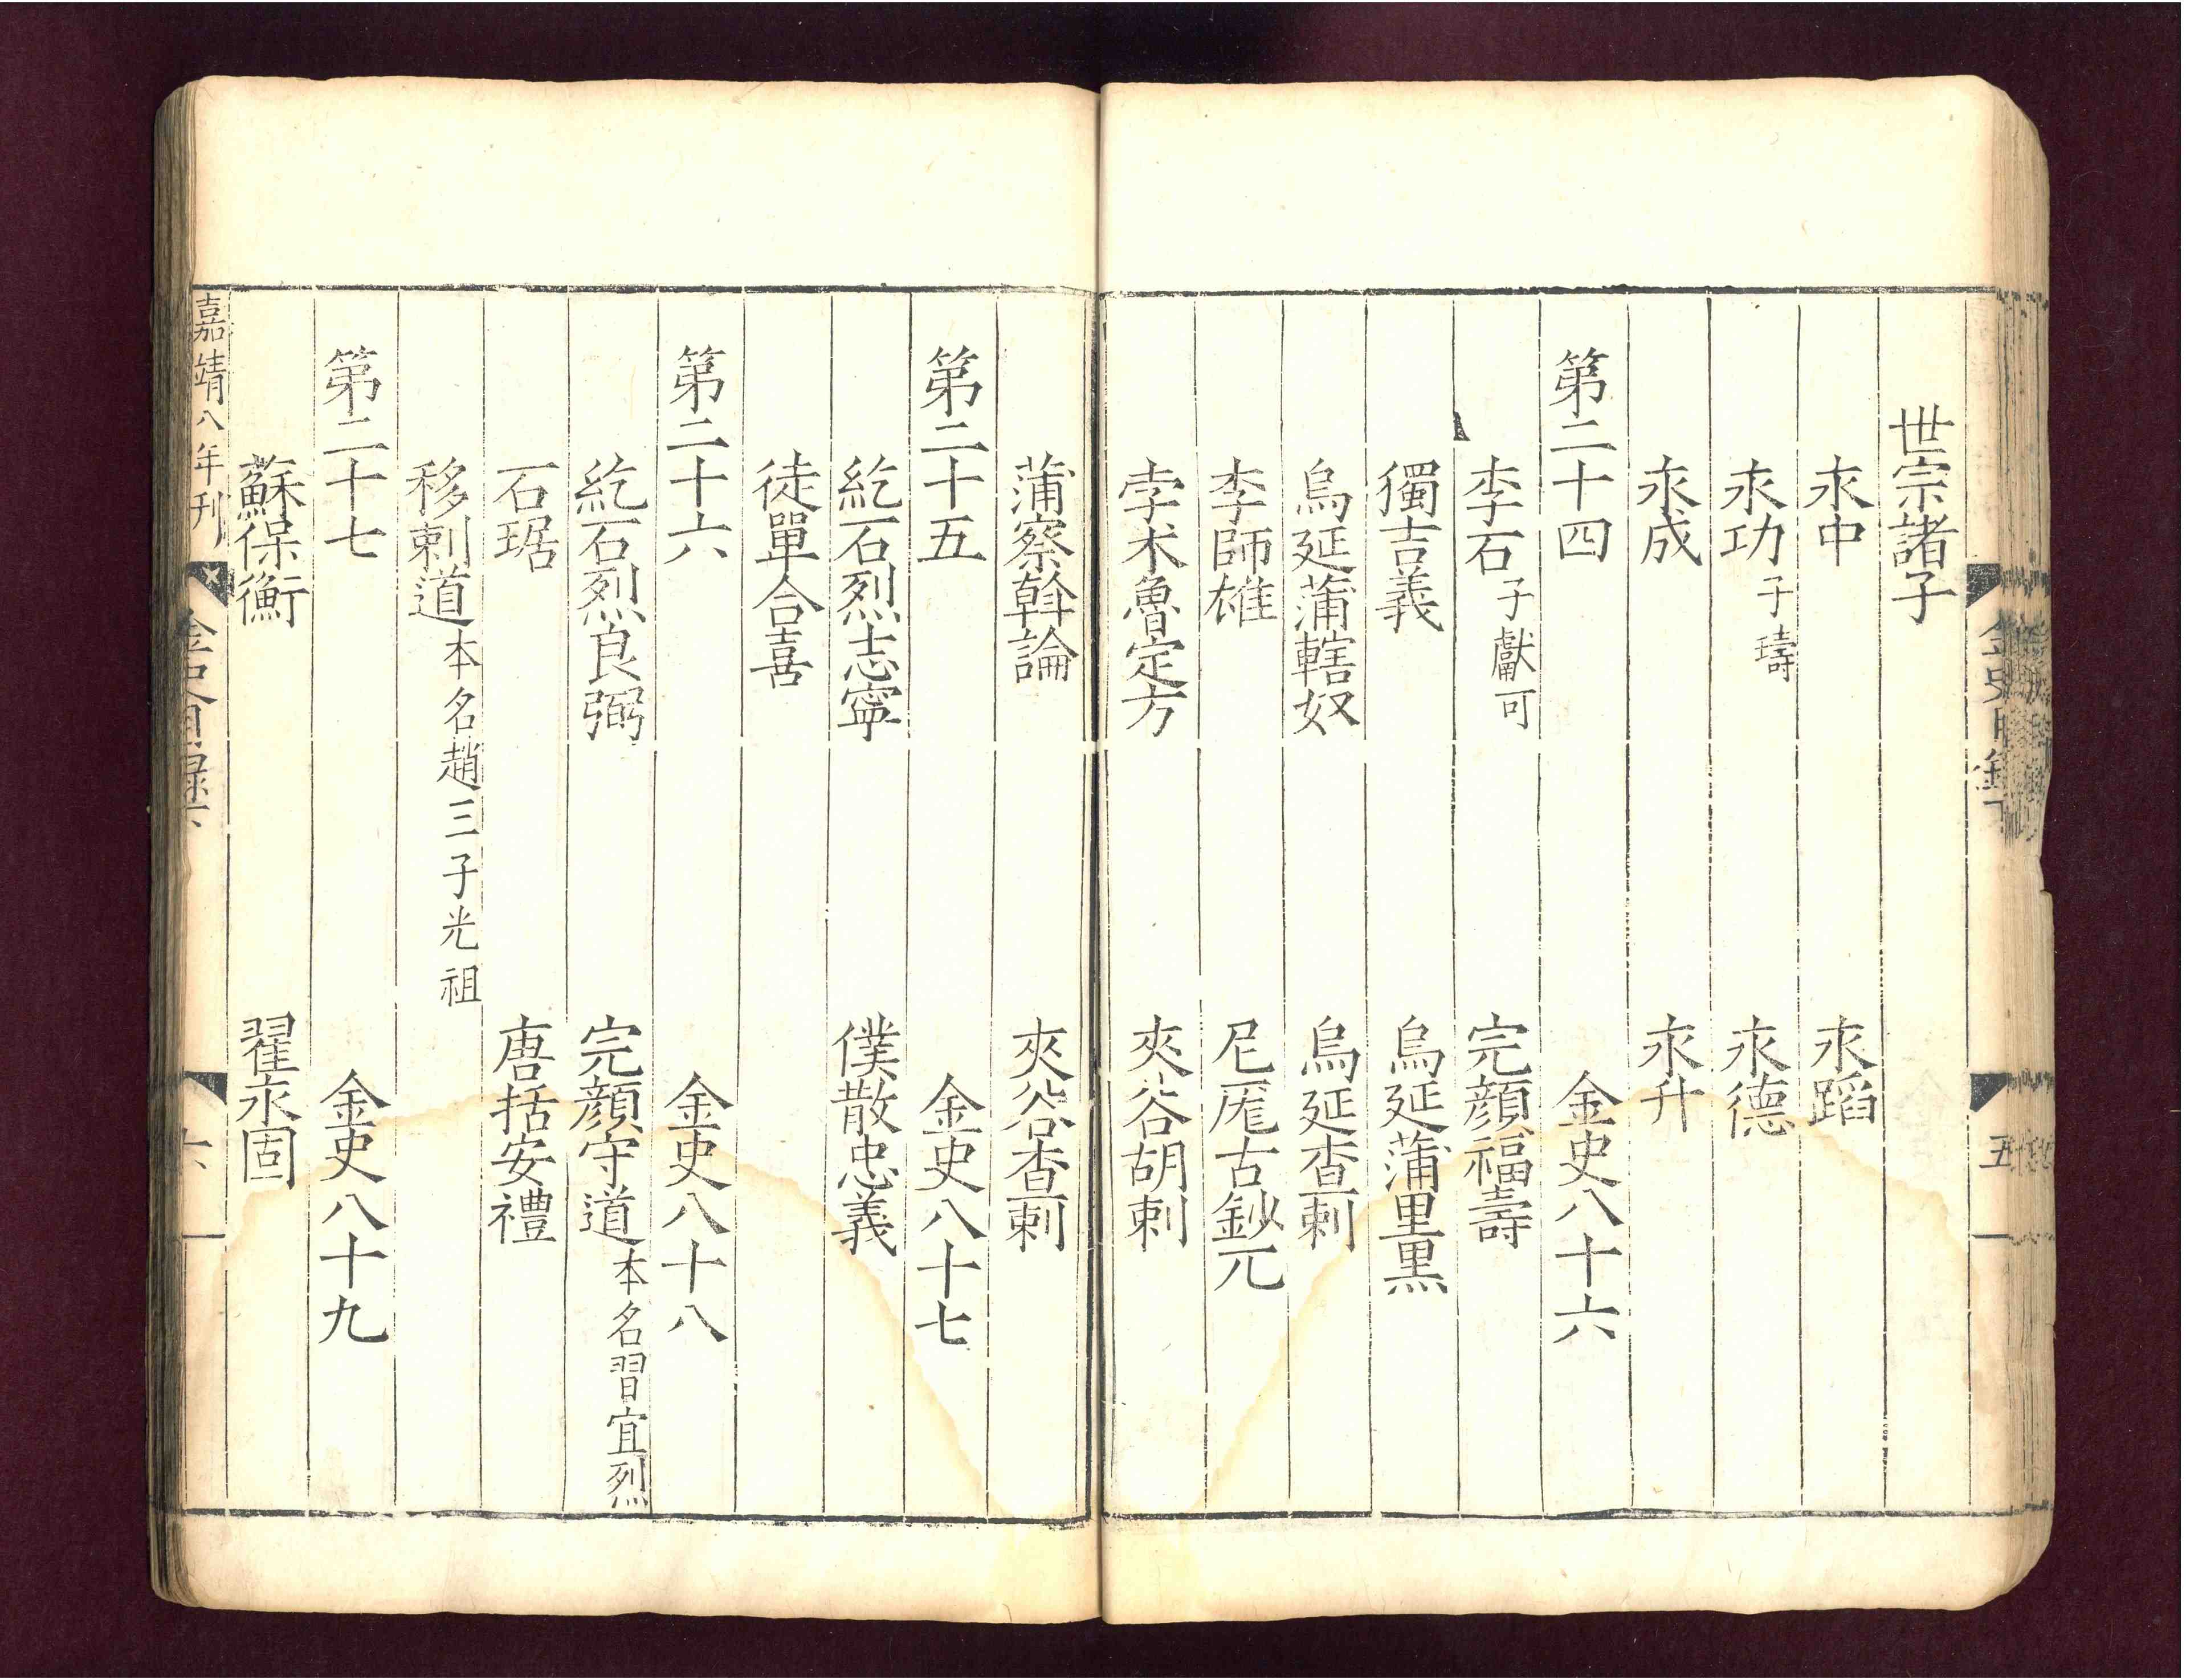 世宗諸子
永中　永蹈
永功子璹　永德
永成　永升
第二十四　金史八十六
李石子獻可　完顔福壽
獨吉義　烏延蒲里黒
烏延蒲轄奴　烏延查剌
李師雄　尼厖古鈔兀
孛术魯定方　夾谷胡剌
蒲察斡論　夾谷查剌
第二十五　金史八十七
紇石烈志寧　僕散忠義
徒單合喜
第二十六　金史八十八
紇石烈良弼　完顔守道本名習宜烈
石琚　唐括安禮
移剌道本名趙三子光祖
第二十七　金史八十九
蘇保衡　翟永固
嘉靖八年刊　金史目録下　六
金史目録下　五